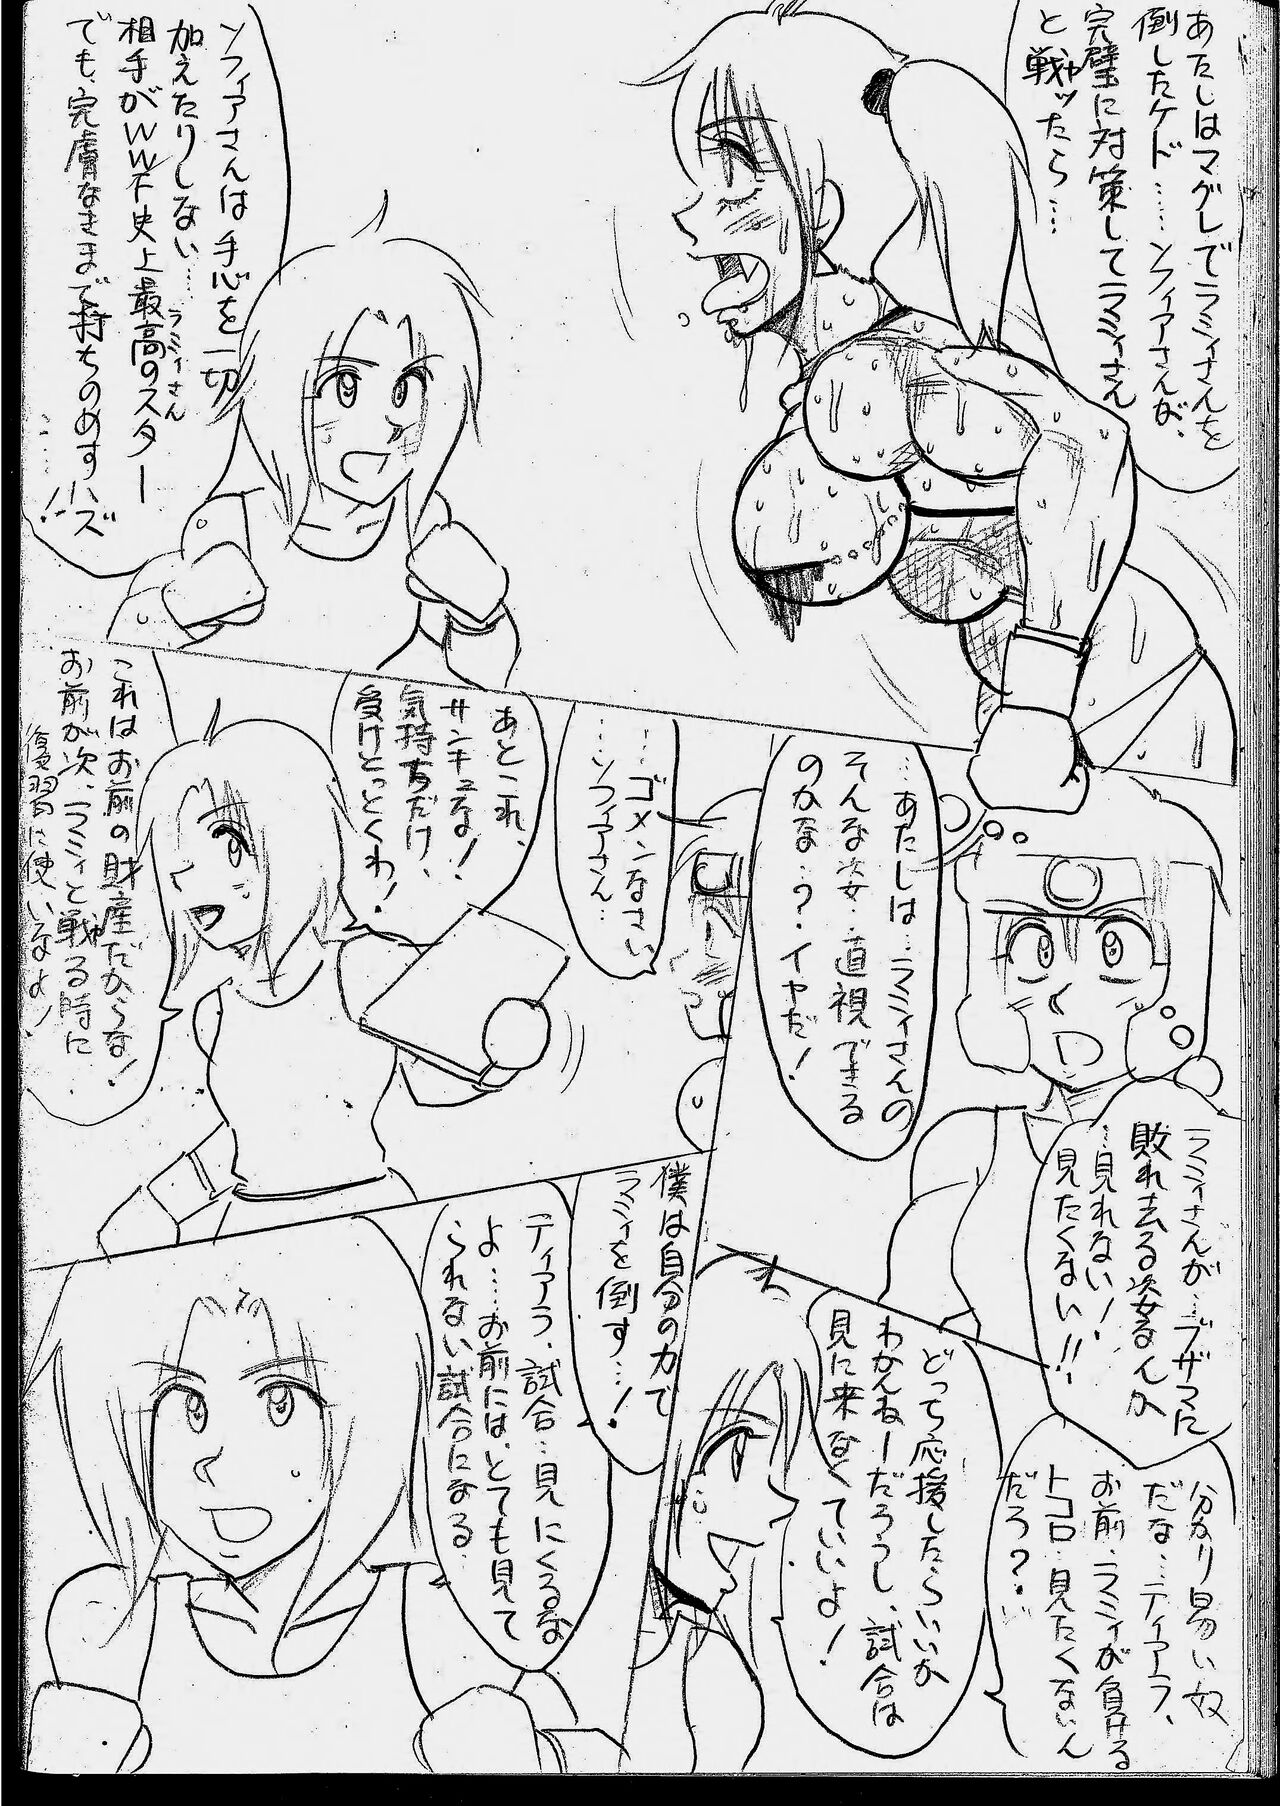 あたしはマグレでラミィさんを
倒したケド……ソフィアさんが、
完璧に対策してラミィさん
と戦ッたら…
ャ
ソフィアさんは手心を一切
加えたりしない…
ラミィさん
相手がWWF史上最高のスター
でも、完膚なきまで持ちのめすハズ
……!
…あたしは…ラミィさんの
そんな姿…直視できる
のかな…?・イヤだ!
ラミィさんが…ブザマに
敗れ去る姿なんか
…見れない!
見たくない!!
……ゴメンなさい
…ソフィアさん…
あとこれ、
サンキュな!
気持ちだけ、
受けとっとくわ!
これはお前の財産だからな!
お前が次、ラミィと戦る時に
ヤ
復習に使いなよ!
分かり易い奴
だな…ティアラ、
お前…ラミィが負ける
トコロ…見たくないん
だろ?…
どっち応援したらいいか
わかんねーだろうし、試合は
見に来なくていいよ!
僕は自分の力で
ラミィを倒す…!
ティアラ、試合…見にくるな
よ……お前には、とても見て
られない試合になる…